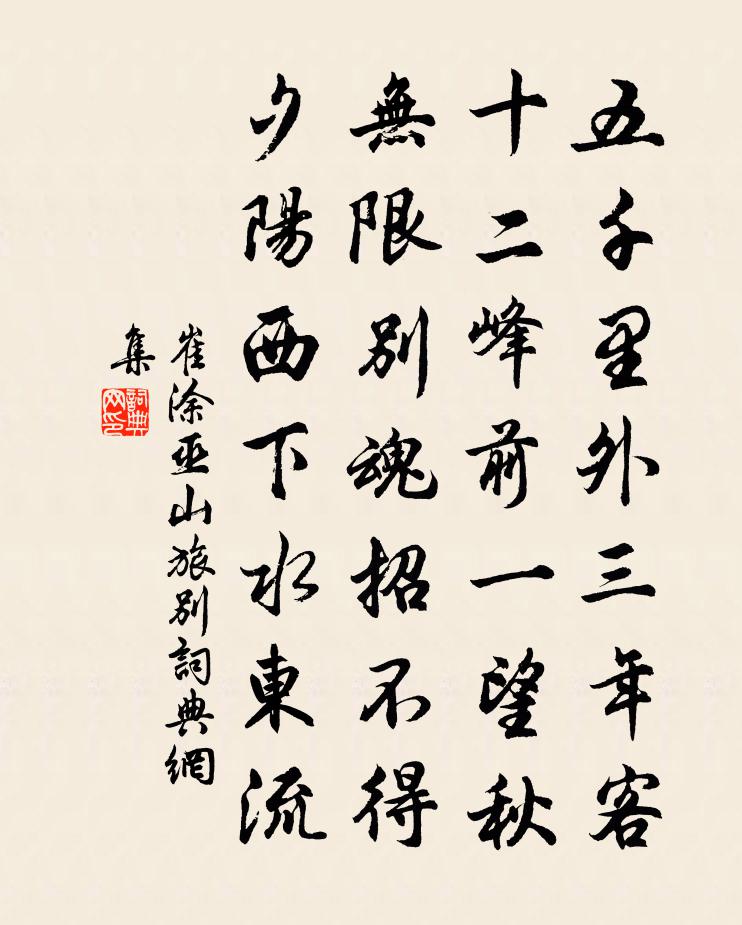 五千里外三年客
十二峰前一望秋
無限別魂招不得
夕陽西下水東流
崔涂巫山旅別詞典網
集
詞典
网印